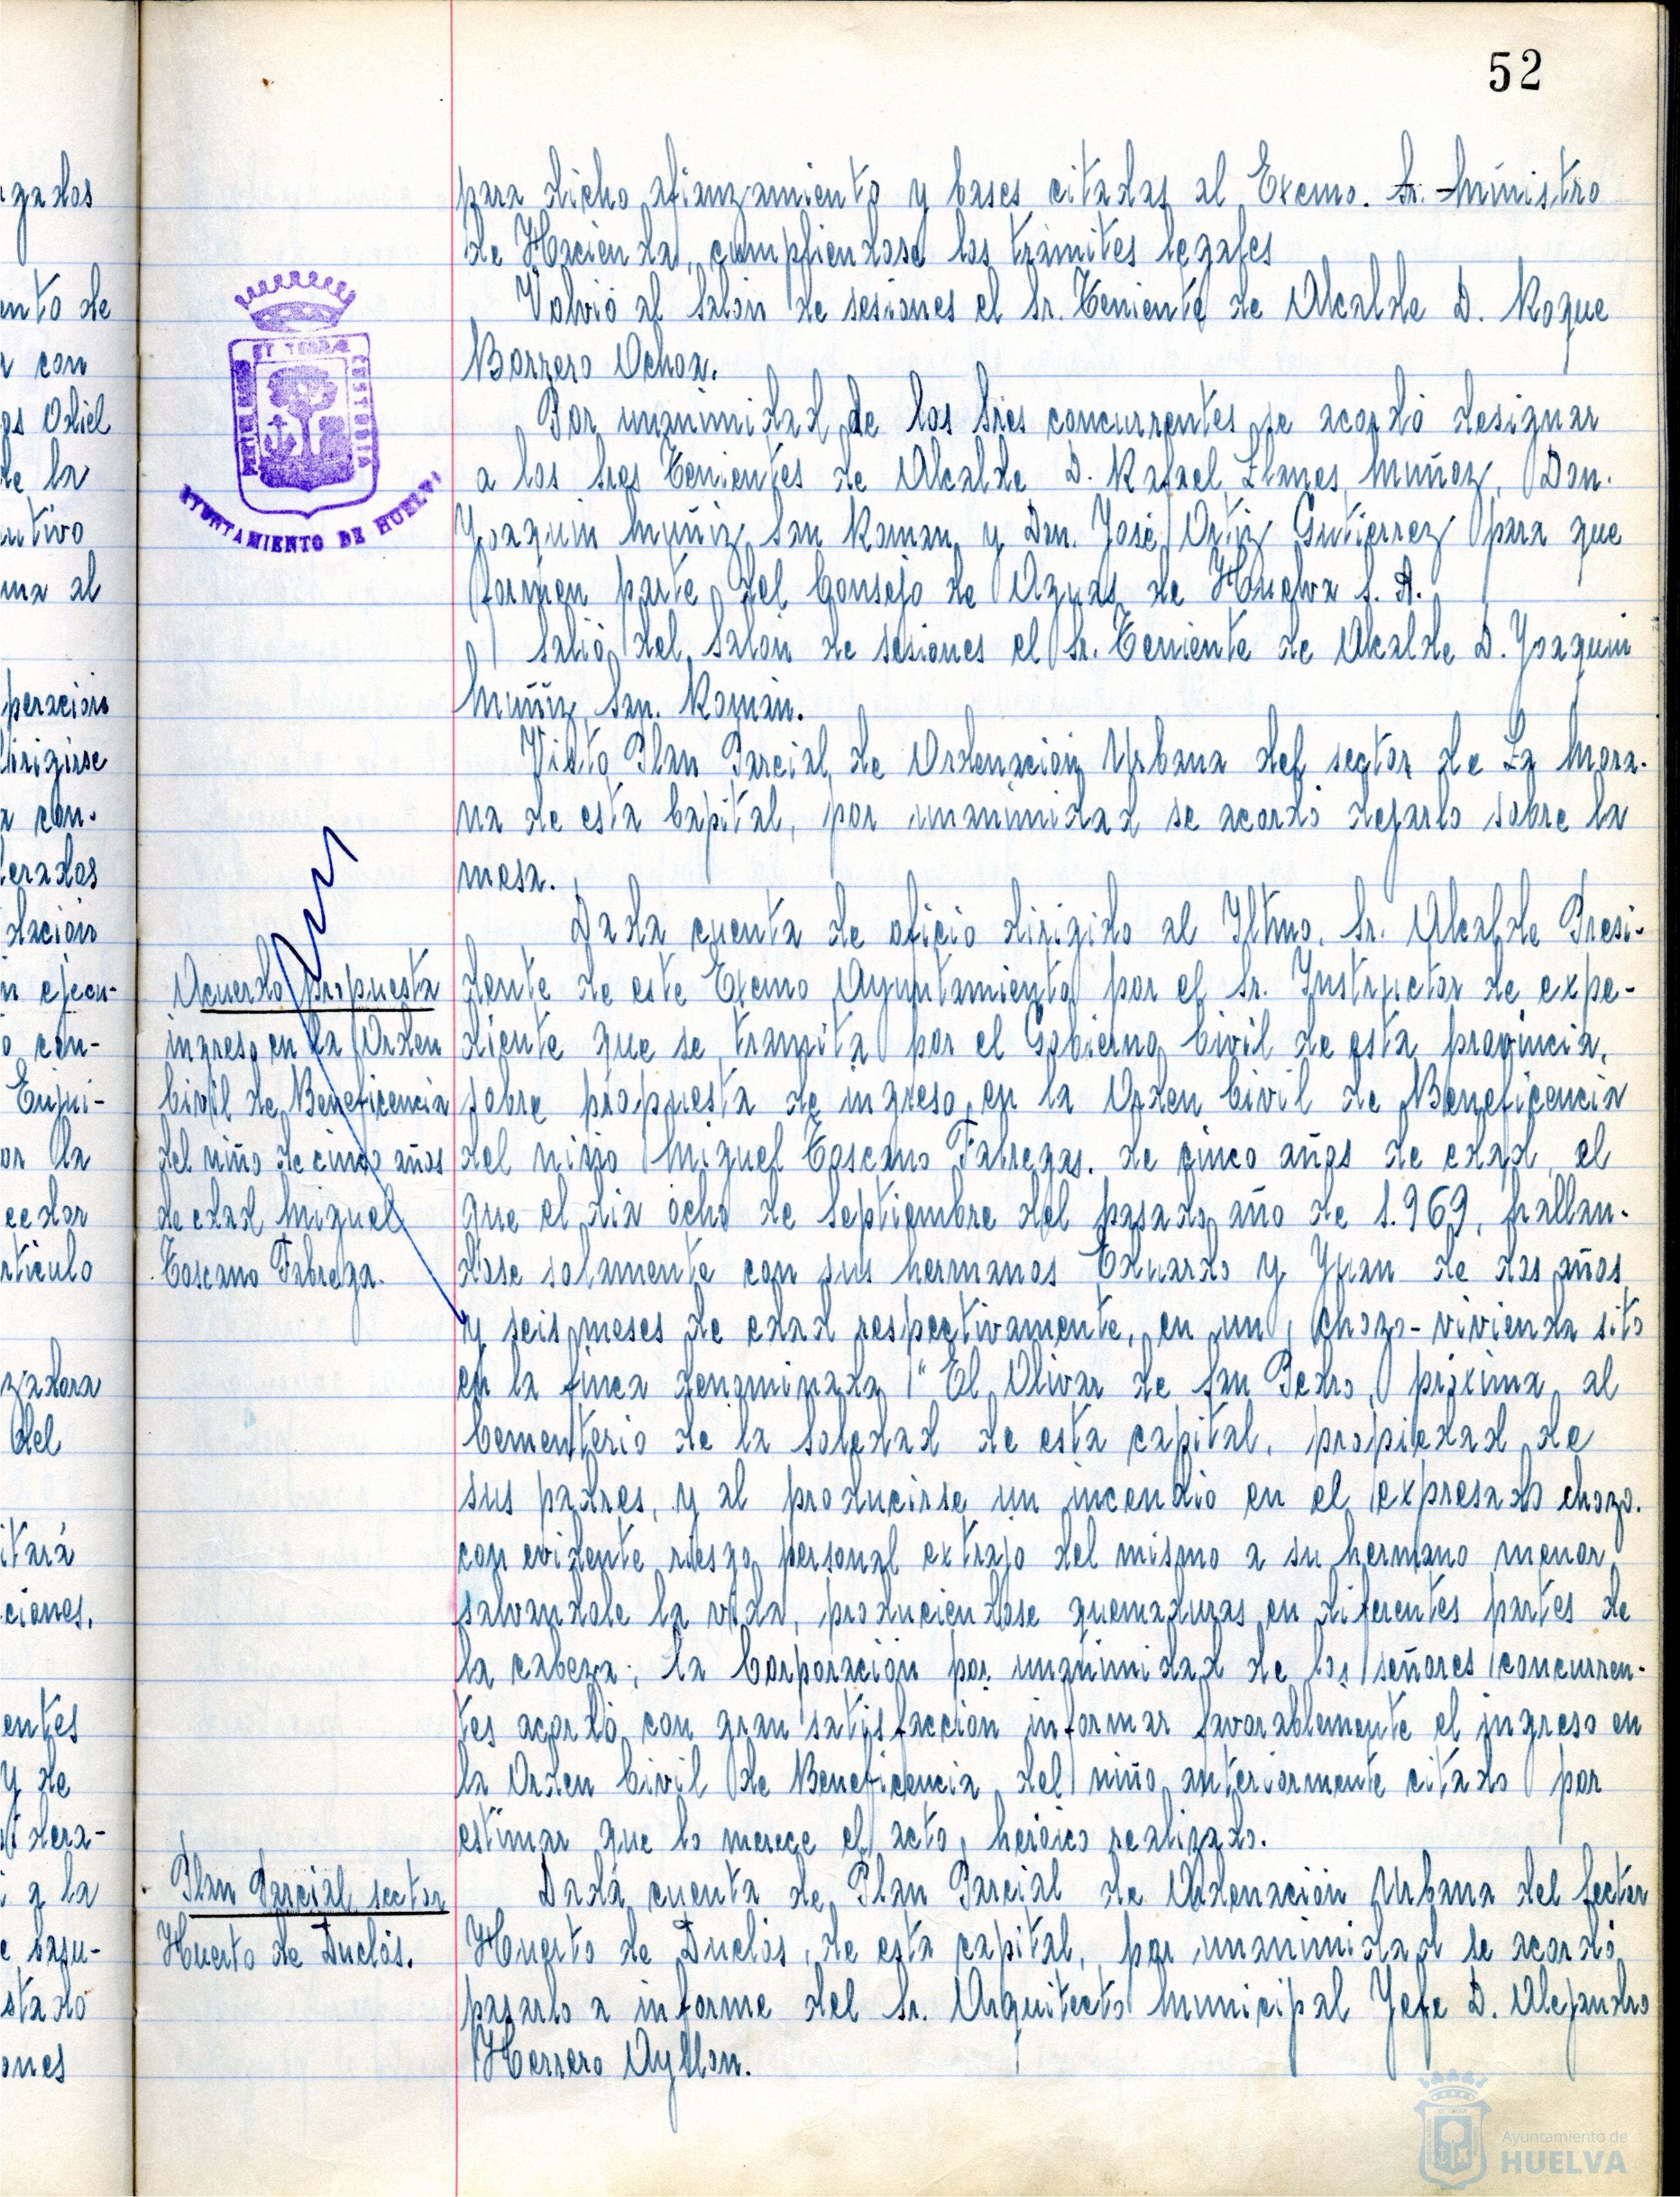 52
para dicho afianzamiento y bases citadas al Excmo. Sr. Ministro
de Hacienda, cumpliendose los trámites legales
Volvió al Salón de sesiones el Sr. Teniente de Alcalde D. Roque
Borrero Ochoa.
Por unanimidad de los Sres concurrentes se acordó designar
a los Sres Tenientes de Alcalde D. Rafael Llanes Muñoz, Don.
Joaquin Muñiz San Roman y Don. José Ortiz Gutierrez para que
formen parte del Consejo de Aguas de Huelva S. A.
Salió del Salón de sesiones el Sr. Teniente de Alcalde D. Joaquin
Muñiz San. Román.
Visto Plan Parcial de Ordenación Urbana del sector de La Mora-
na de esta Capital, por unanimidad se acordó dejarlo sobre la
mesa.
Dada cuenta de oficio dirigido al Iltmo. Sr. Alcalde Presi-
dente de este Excmo Ayuntamiento por el Sr. Instructor de expe-
diente que se tramita por el Gobierno Civil de esta provincia,
sobre propuesta de ingreso en la Orden Civil de Beneficencia
del niño Miguel Toscano Fabregas. de cinco años de edad, el
que el dia ocho de Septiembre del pasado año de 1.969, hallan-
dose solamente con sus hermanos Eduardo y Juan de dos años
y seis meses de edad respectivamente, en un chozo-vivienda sito
en la finca denominada "El Olivar de San Pedro, próxima al
Cementerio de la Soledad de esta capital, propiedad de
sus padres, y al producirse un incendio en el expresado chozo.
con evidente riesgo personal extrajo del mismo a su hermano menor,
salvandole la vida, produciendose quemaduras en diferentes partes de
la cabeza; la Corporación por unanimidad de los señores concurren-
tes acordó con gran satisfacción informar favorablemente el ingreso en
la Orden Civil de Beneficencia del niño anteriormente citado por
estimar que lo merece el acto heróico realizado.
Dada cuenta de Plan Parcial de Ordenación Urbana del Sector
Huerto de Duclós, de esta capital, por unanimidad se acordó
pasarlo a informe del Sr. Arquitecto Municipal Jefe D. Alejandro
Herrero Ayllon.
Acuerdo propuesta
ingreso en la Orden
Civil de Beneficencia
del niño de cinco años
de edad Miguel
Toscano Fabrega.
Plan Parcial sector
Huerto de Duclós.
AYUNTAMIENTO DE HUELVA
gados
ento de
con
os Odiel
de la
utivo
ma al
peracion
dirigirse
a con-
derados
dación
n ejecu-
o con-
or la
rticulo
zadora
del
itará
ciones.
entes
y de
dera-
a la
stado
ones
Ayuntamiento de
HUELVA